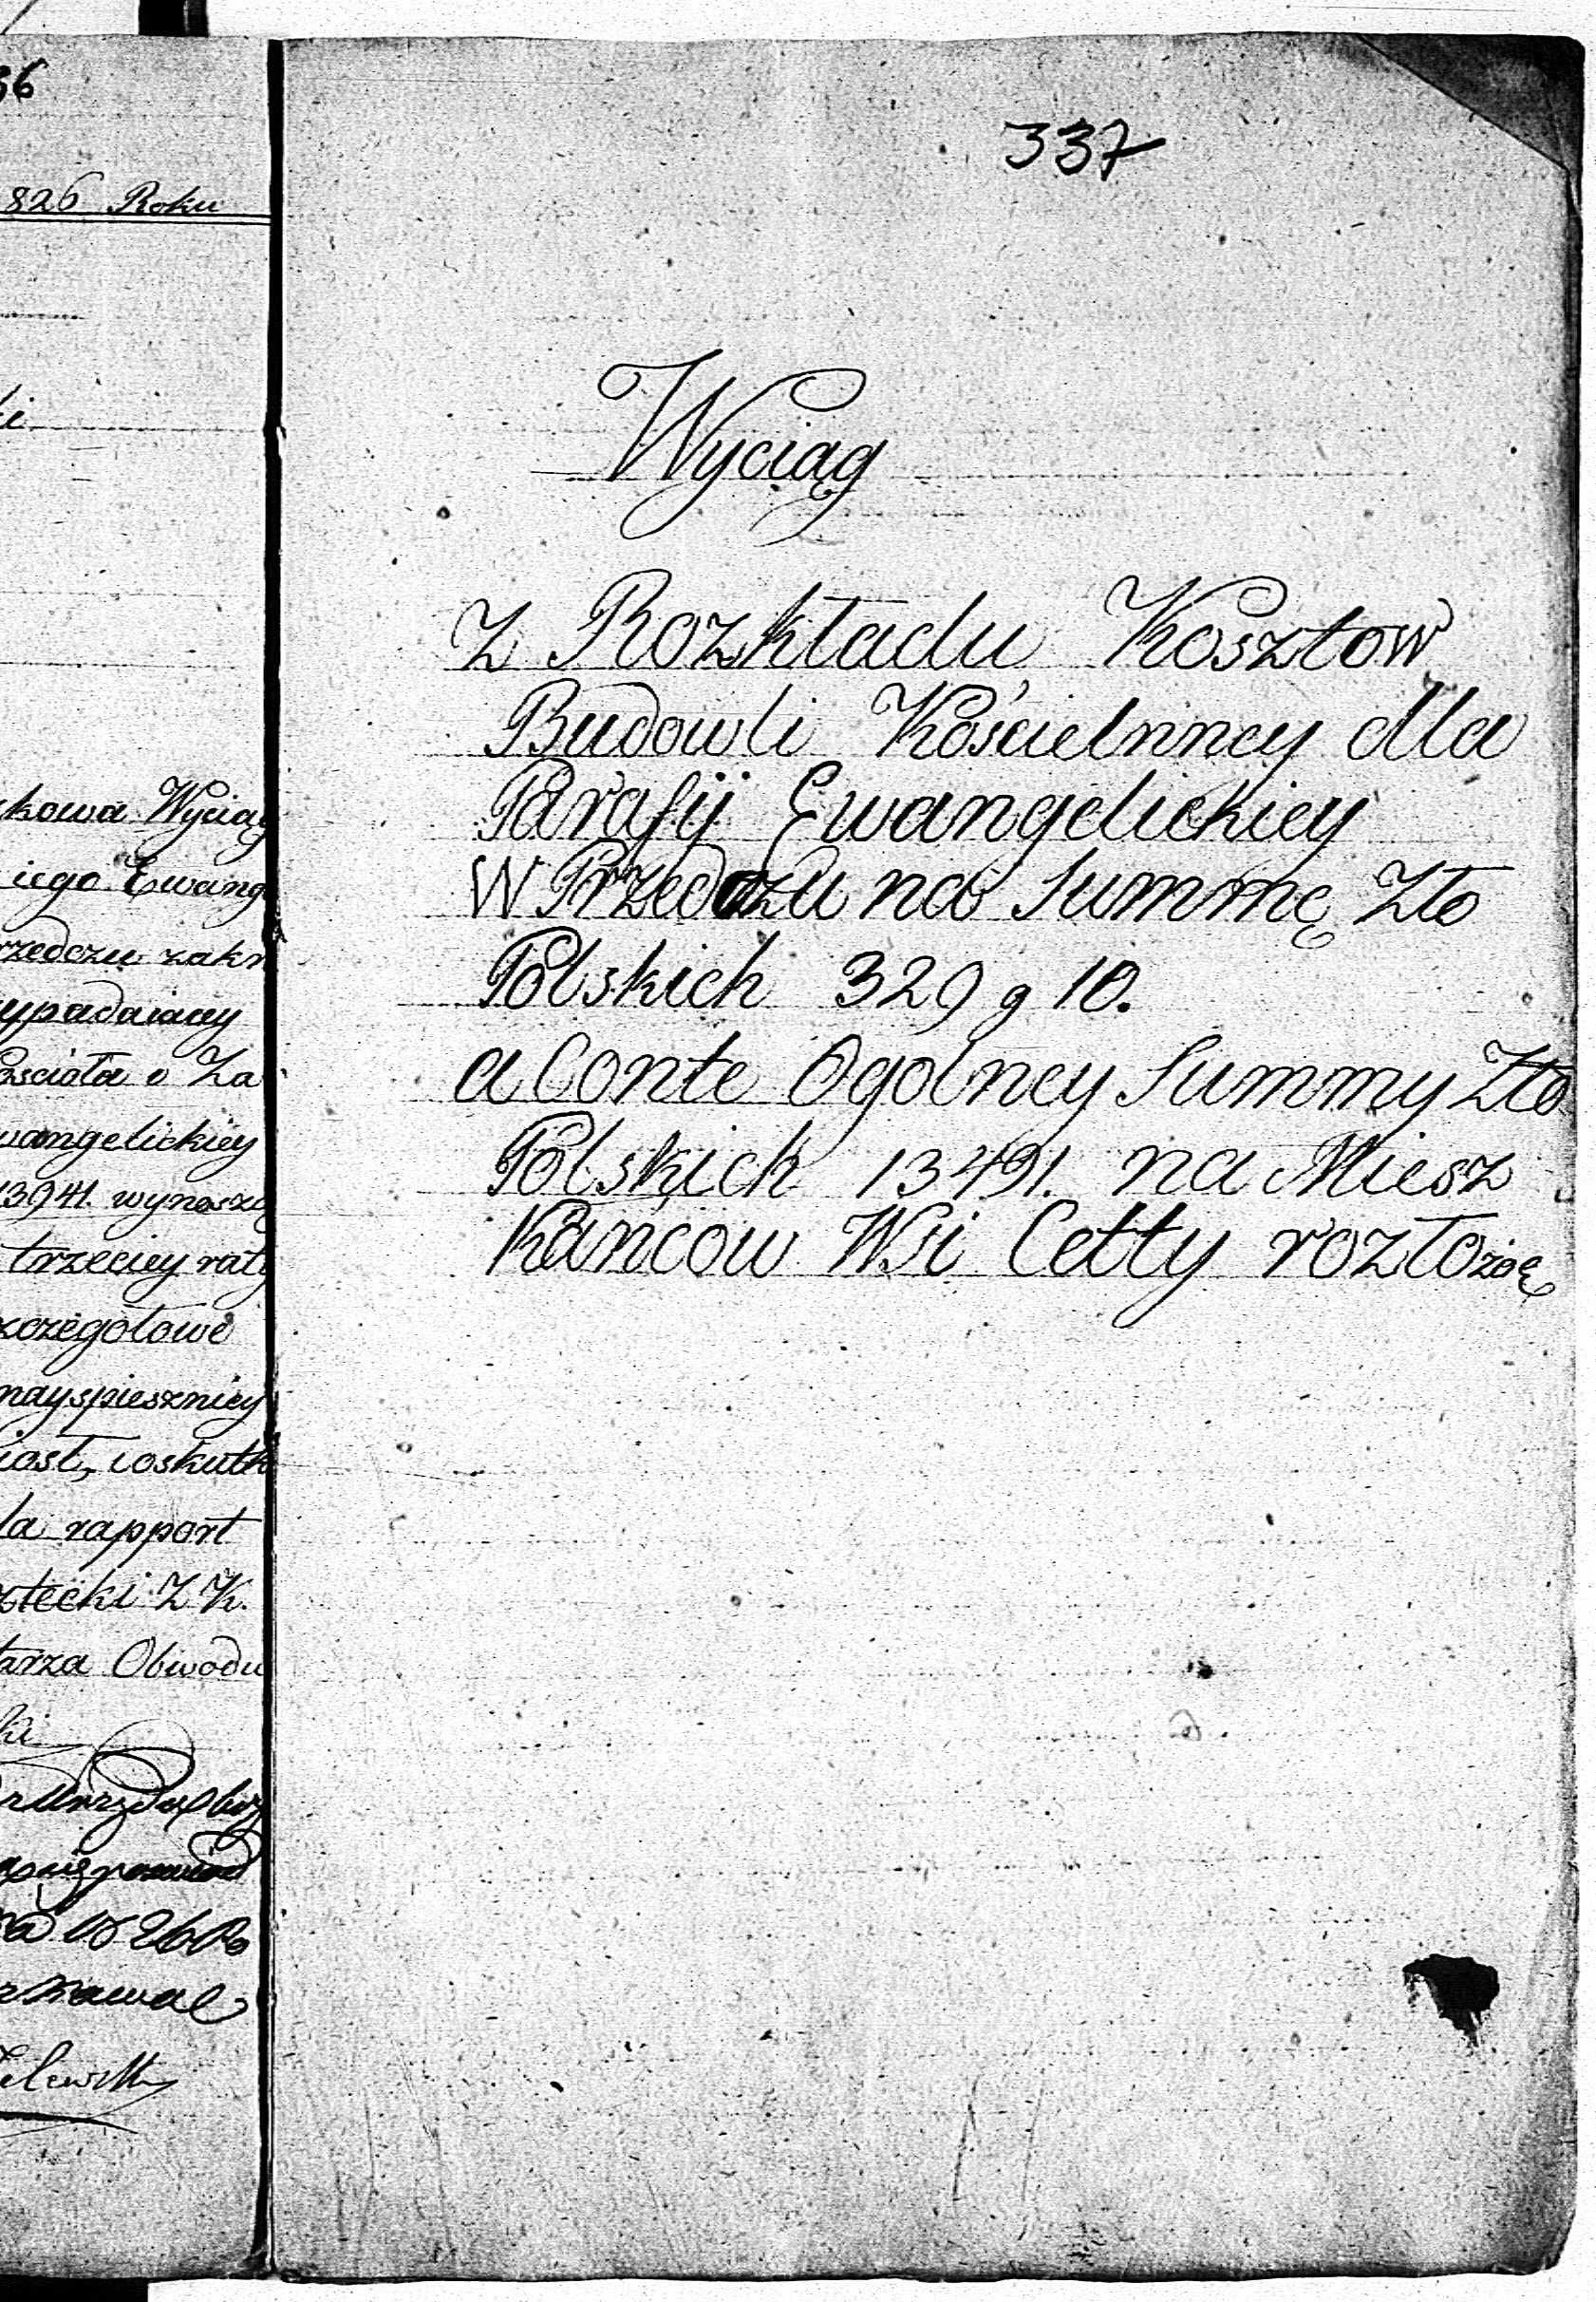 36
826 Roku
ki
kowa Wyciąg
iego Ewang
rzedczu zakr
ypadaiącey
ościoła i Za
wangelickiey
13941. wynoszą
trzeciey raty
zczegółowe
nayspieszniey
iast, i oskutk
la rapport
Z K.
tarza Obwodu
ki
337
Wyciąg
Z Rozkładu Kosztow
Budowli Kościelnney dla
Parafij Ewangelickiey
W Przedczu na Summę Zło
Polskich 329 g 10.
a Conte Ogolney Summy Zło
Polskich 13491. na Miesz
kańcow Wsi Cetty rozłożoę